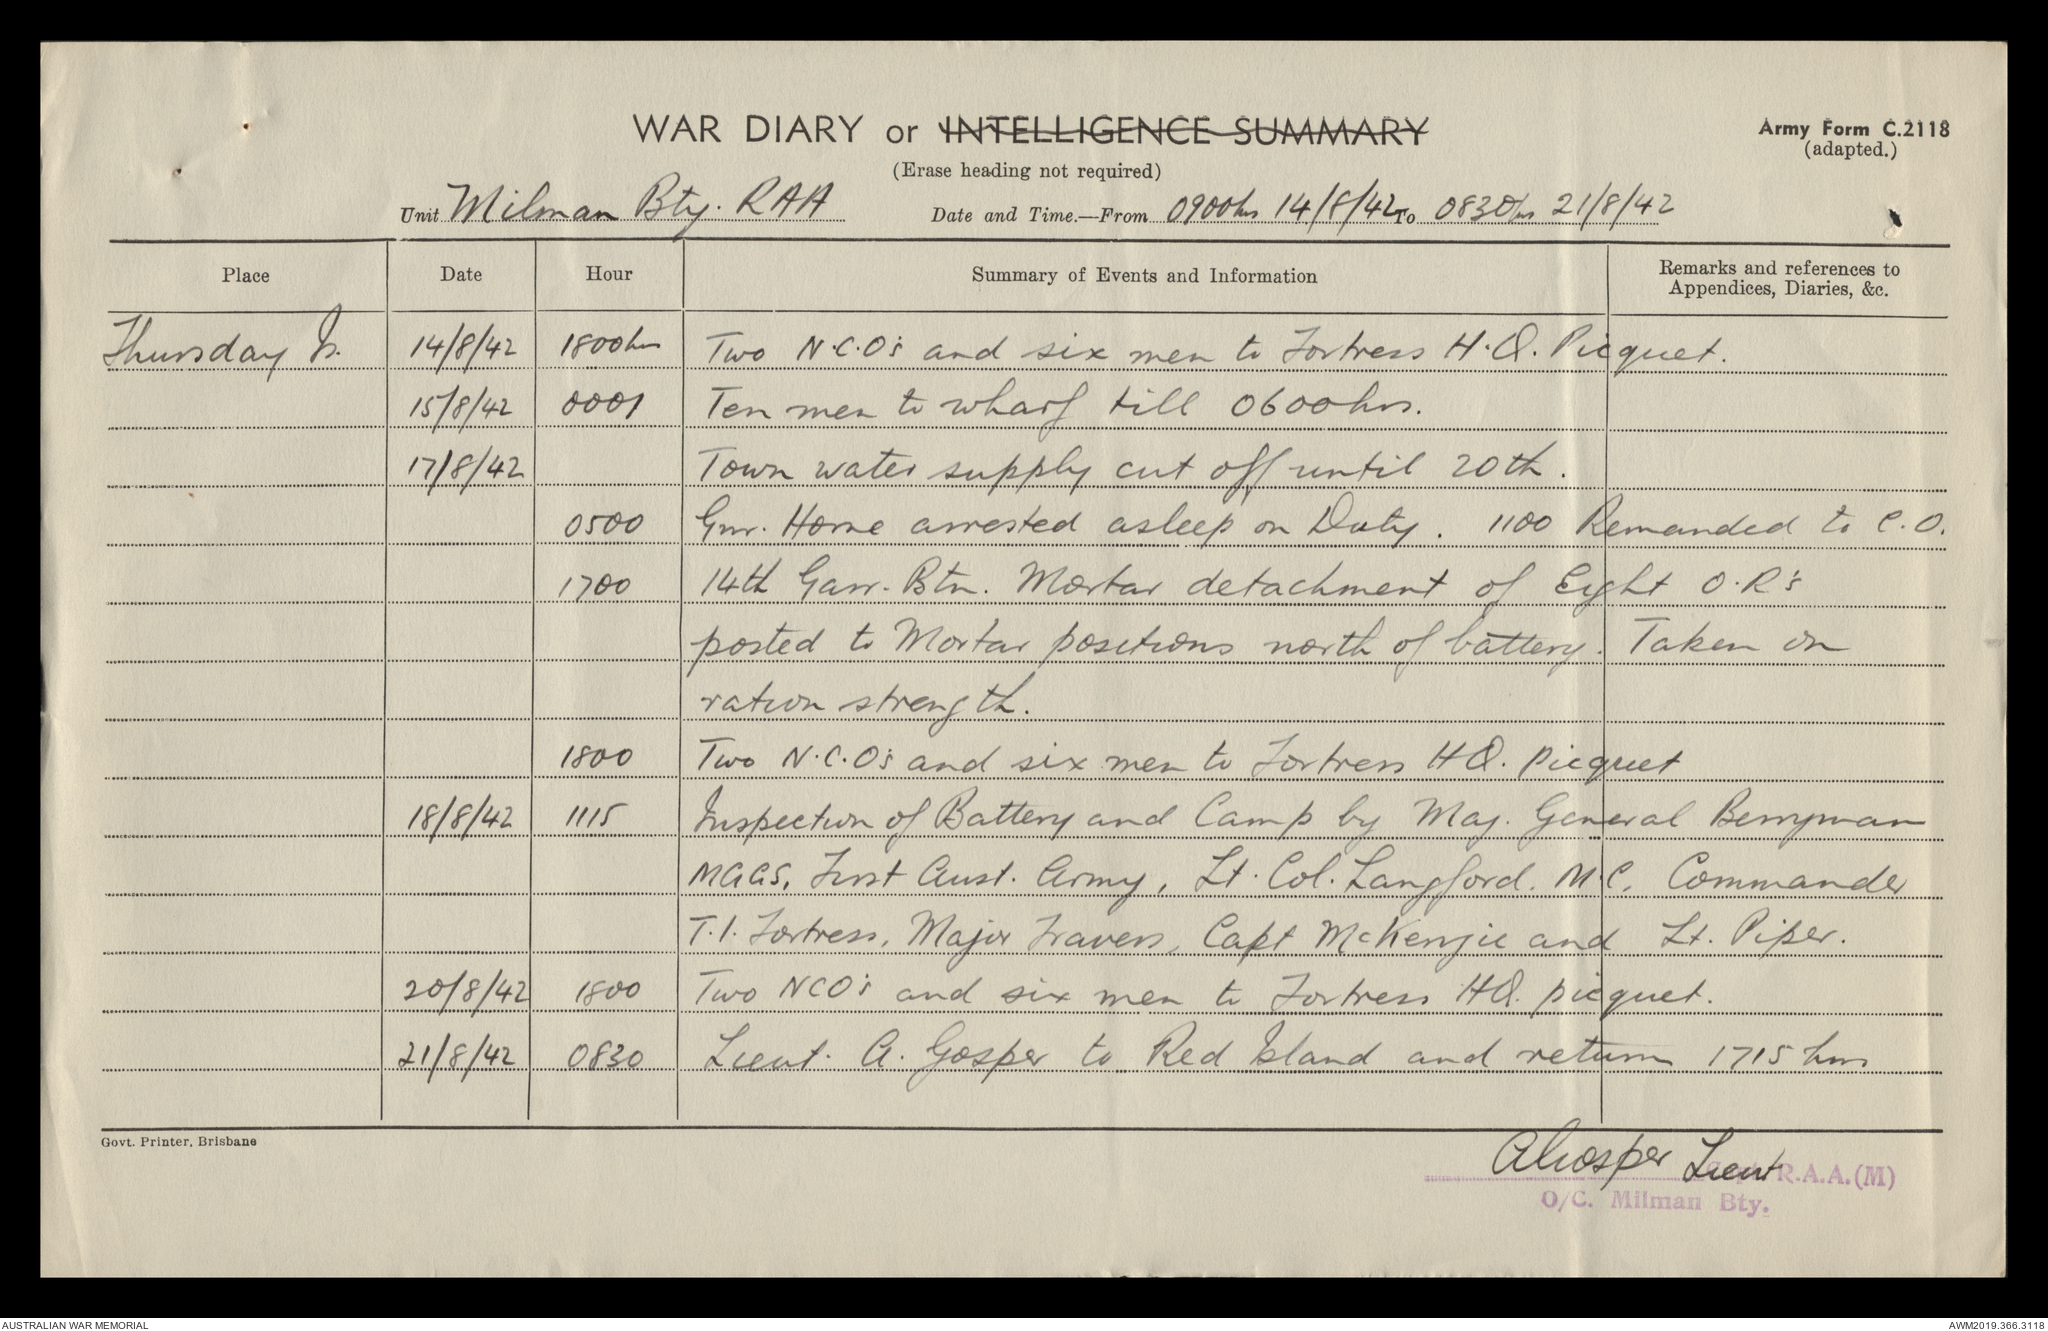 WAR DIARY or INTELLIGENCE SUMMARY
Army Form C.2118
(adapted.)
(Erase heading not required)
Unit Milman Bty. RAA Date and Time.—From 0900hrs 14/8/42 To 0830hrs 21/8/42
Place Date Hour Summary of Events and Information Remarks and references to
Appendices, Diaries, &c.
Thursday Is. 14/8/42 1800hrs Two N.C.O's and six men to Fortress H.Q. Picquet.
15/8/42 0001 Ten men to wharf till 0600hrs.
17/8/42 Town water supply cut off until 20th.
0500 Gnr. Horne arrested asleep on Duty. 1100 Remanded to C.O.
1700 14th Garr. Btn. Mortar detachment of Eight O.R's
posted to Mortar positions north of battery. Taken on
ration strength.
1800 Two N.C.O's and six men to Fortress HQ. Picquet
18/8/42 1115 Inspection of Battery and Camp by Maj. General Berryman
MGGS, First Aust. Army, Lt. Col. Langford. M.C. Commander
T.I. Fortress, Major Travers, Capt McKenzie and Lt. Piper.
20/8/42 1800 Two NCO's and six men to Fortress HQ. picquet.
21/8/42 0830 Lieut. A. Gosper to Red Island and return 1715 hrs
Govt. Printer, Brisbane
A Gosper Lieut
R.A.A.(M)
O/C. Milman Bty.
AUSTRALIAN WAR MEMORIAL
AWM2019.366.3118